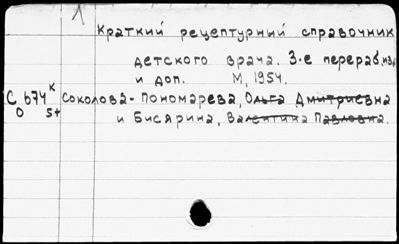 1
Краткий рецептурний справочник
детского врача. 3-е перераб. изд.
и доп. М, 1954.
С 674 к Соколова-Пономарева, Ольга Дмитриевна
О 5+ и Бисярина, Валентина Павловна.